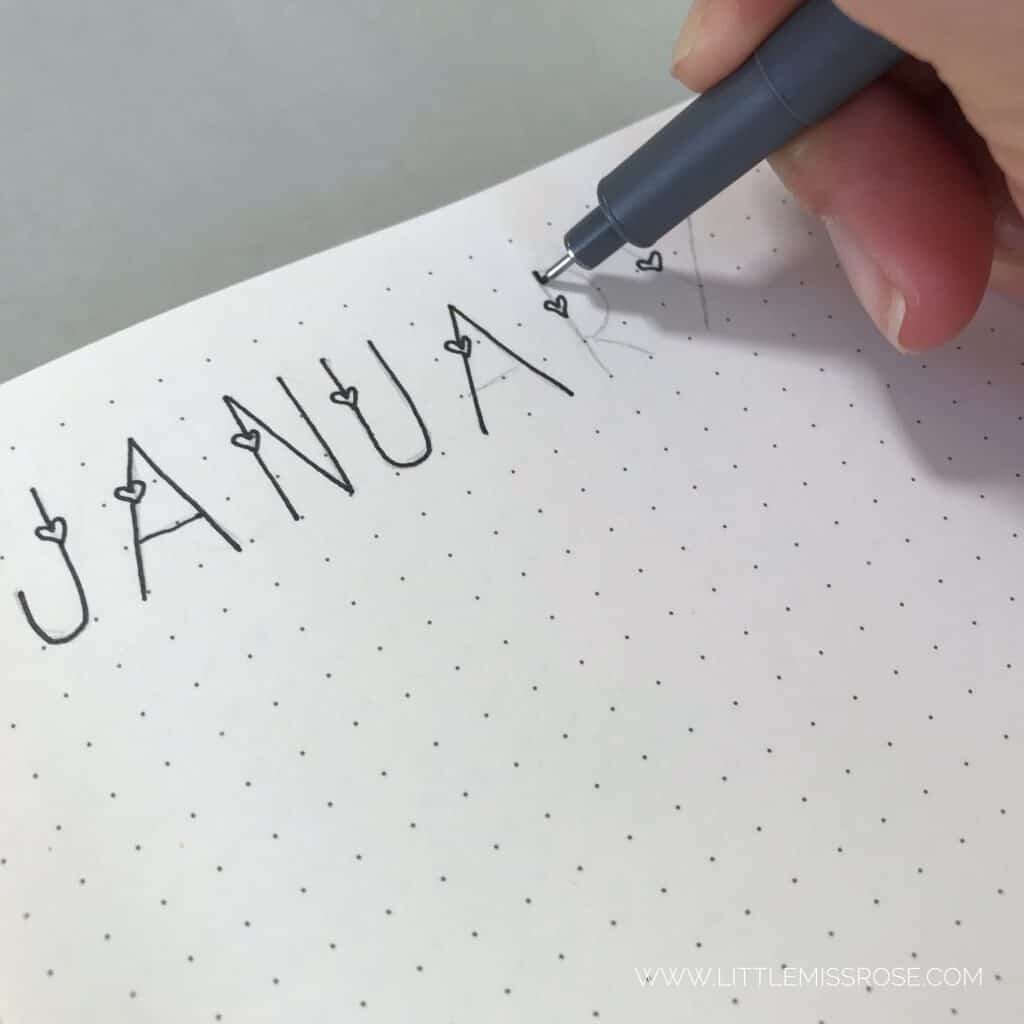 JANUARY
WWW.LITTLEMISSROSE.COM